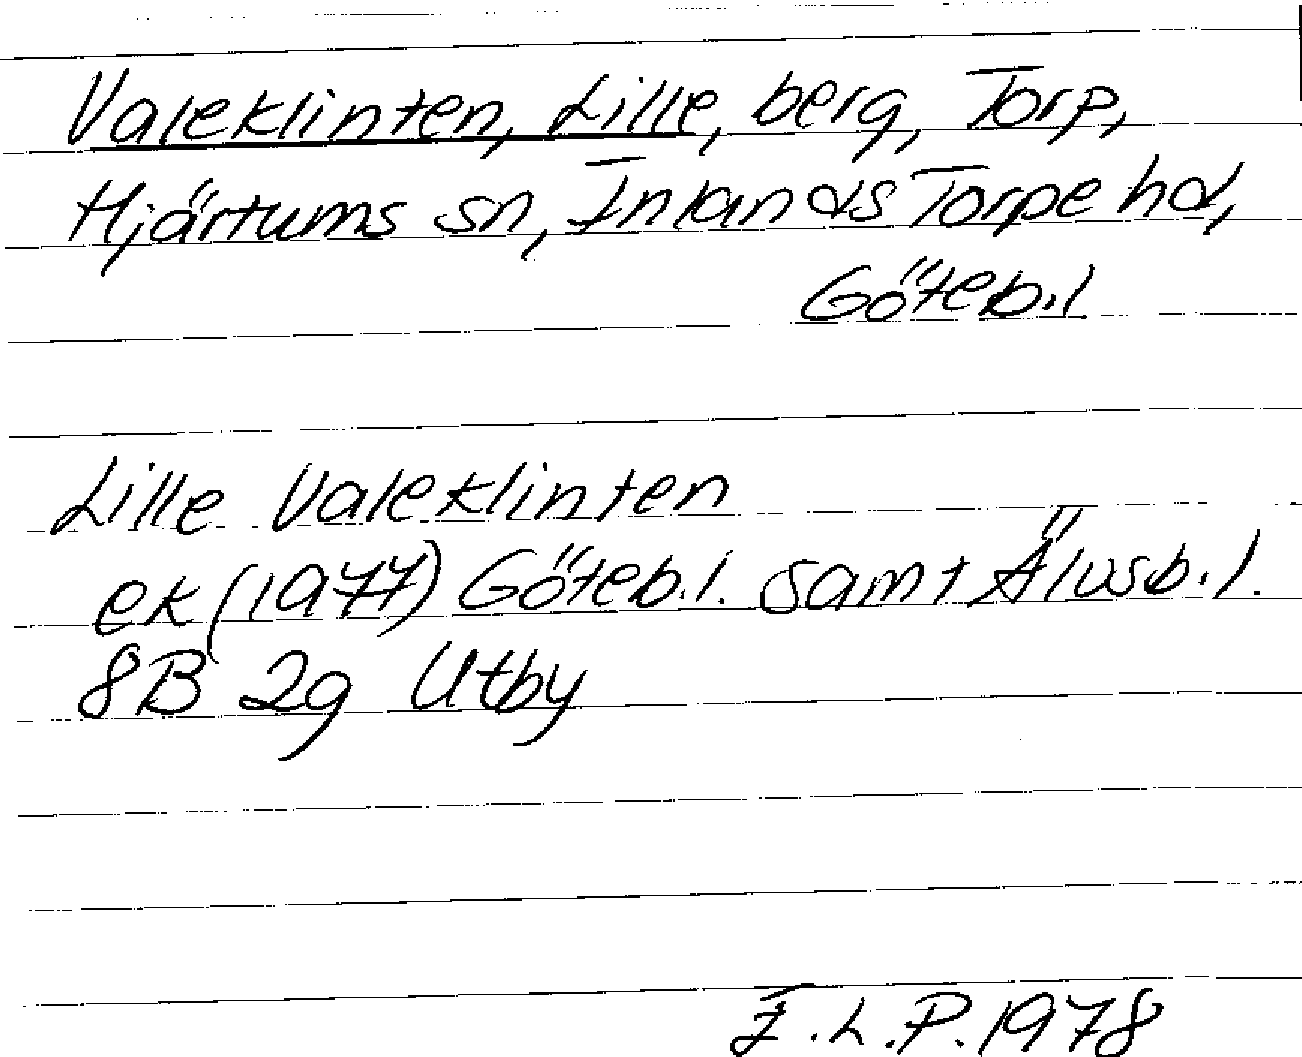 Valeklinten, Lille, berg, Torp,
Hjärtums sn, Inlands Torpe hd,
Göteb.l
Lille Valeklinten
ek (1977) Göteb.l. samt Älvsb.l.
8B 2g Utby
I.L.P. 1978